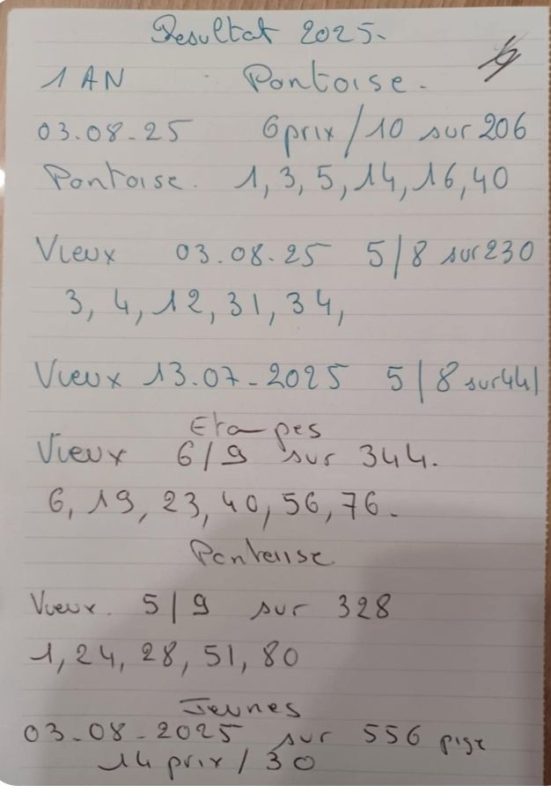 Resultat 2025.
1 AN Pontoise.
03.08.25 6prix/10 sur 206
Pontoise. 1, 3, 5, 14, 16, 40
Vieux 03.08.25 5/8 sur 230
3, 4, 12, 31, 34,
Vieux 13.07-2025 5/8 sur 441
Etampes
Vieux 6/9 sur 344.
6, 19, 23, 40, 56, 76.
Pontoise
Vieux. 5/9 sur 328
1, 24, 28, 51, 80
Jeunes
03-08-2025 sur 556 pige
14 prix / 30